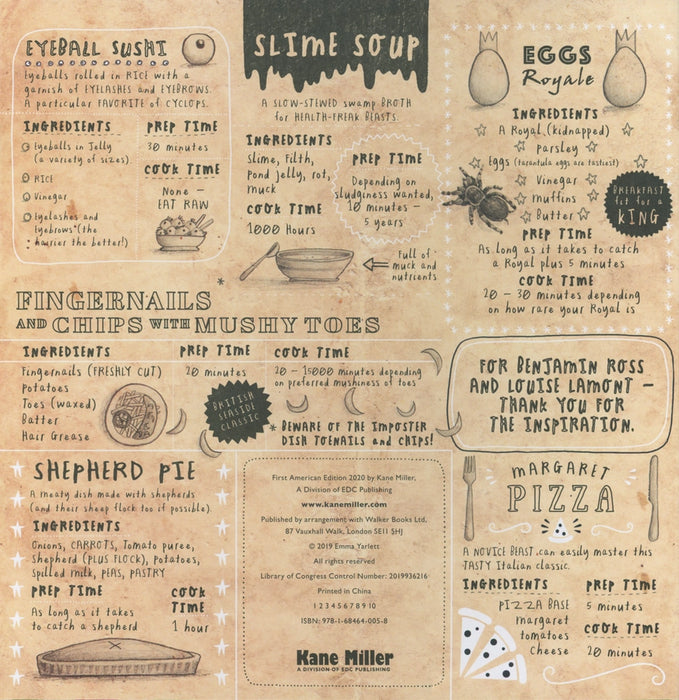 EYEBALL SUSHI
Eyeballs rolled in RICE with a
garnish of EYELASHES and EYEBROWS.
A particular FAVORITE of CYCLOPS.
INGREDIENTS
Eyeballs in Jelly
(a variety of sizes)
RICE
Vinegar
Eyelashes and
Eyebrows*(the
hairier the better!)
PREP TIME
30 minutes
COOK TIME
None –
EAT RAW
SLIME SOUP
A SLOW-STEWED swamp BROTH
for HEALTH-FREAK BEASTS.
INGREDIENTS
Slime, Filth,
Pond jelly, rot,
muck
COOK TIME
1000 Hours
PREP TIME
Depending on
sludginess wanted,
10 minutes –
5 years
Full of
muck and
nutrients
EGGS
Royale
INGREDIENTS
A Royal (kidnapped)
Parsley
Eggs (tarantula eggs are tastiest)
Vinegar
Muffins
Butter
BREAKFAST
fit for a
KING
PREP TIME
As long as it takes to catch
a Royal plus 5 minutes
COOK TIME
20 – 30 minutes depending
on how rare your Royal is
*
FINGERNAILS
AND CHIPS WITH MUSHY TOES
INGREDIENTS
Fingernails (FRESHLY CUT)
Potatoes
Toes (waxed)
Batter
Hair Grease
PREP TIME
20 minutes
BRITISH
SEASIDE
CLASSIC
COOK TIME
20 – 15000 minutes depending
on preferred mushiness of toes
* BEWARE OF THE IMPOSTER
DISH TOENAILS and CHIPS!
FOR BENJAMIN ROSS
AND LOUISE LAMONT –
THANK YOU FOR
THE INSPIRATION.
SHEPHERD PIE
A meaty dish made with shepherds
(and their sheep flock too if possible).
INGREDIENTS
Onions, CARROTS, Tomato puree,
Shepherd (PLUS FLOCK), Potatoes,
Spilled milk, PEAS, PASTRY
PREP TIME
As long as it takes
to catch a shepherd
COOK
TIME
1 hour
First American Edition 2020 by Kane Miller,
A Division of EDC Publishing
www.kanemiller.com
Published by arrangement with Walker Books Ltd,
87 Vauxhall Walk, London SE11 5HJ
© 2019 Emma Yarlett
All rights reserved
Library of Congress Control Number: 2019936216
Printed in China
1 2 3 4 5 6 7 8 9 10
ISBN: 978-1-68464-005-8
Kane Miller
A DIVISION OF EDC PUBLISHING
MARGARET
PIZZA
A NOVICE BEAST can easily master this
TASTY Italian classic.
INGREDIENTS
PIZZA BASE
Margaret
tomatoes
Cheese
PREP TIME
5 minutes
COOK TIME
20 minutes